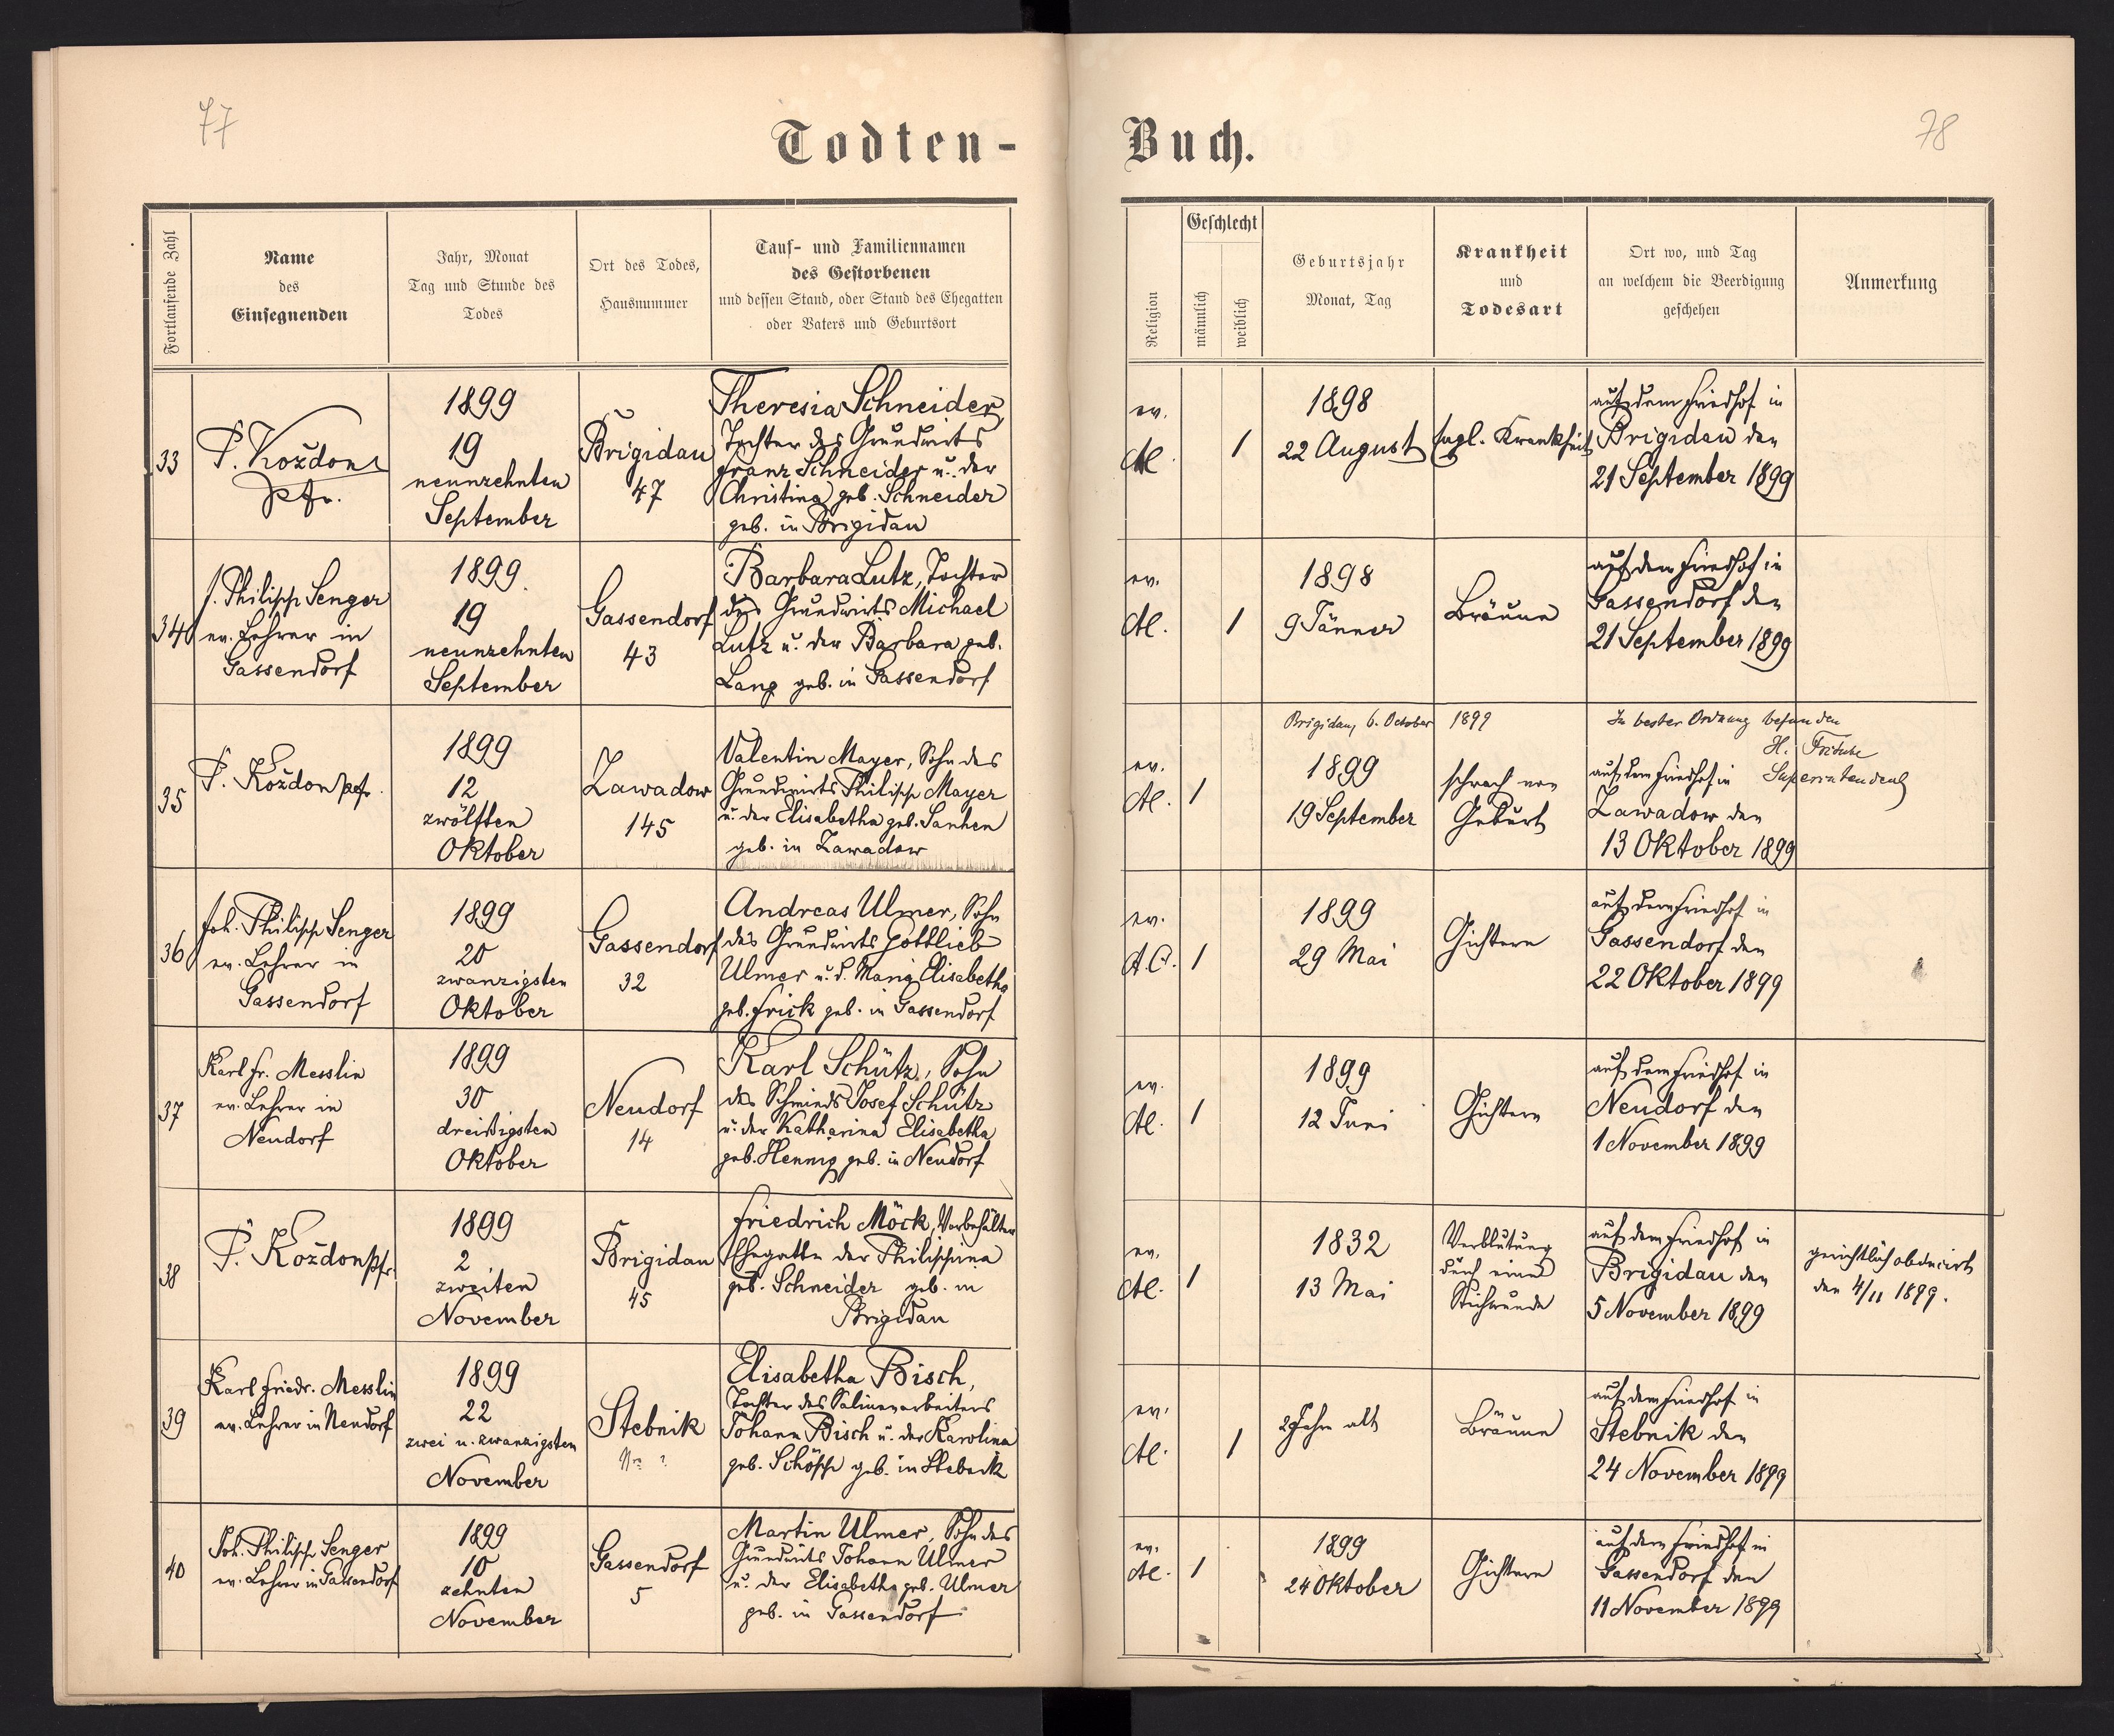 77
78
Todten-
Buch.
Fortlaufende Zahl
Name
des
Einsegnenden
Jahr, Monat
Tag und Stunde des
Todes
Ort des Todes,
Hausnummer
Tauf- und Familiennamen
des Gestorbenen
und dessen Stand, oder Stand des Ehegatten
oder Vaters und Geburtsort
Religion
Geschlecht
männlich
weiblich
Geburtsjahr
Monat, Tag
Krankheit
und
Todesart
Ort wo, und Tag
an welchem die Beerdigung
geschehen
Anmerkung
33
P. Koždon
Pfr.
1899
19
neunzehnten
September
Brigidau
47
Theresia Schneider,
Tochter des Grundwirts
Franz Schneider u. der
Christina geb. Schneider
geb. in Brigidau
ev.
AC.
1
1898
22 August
engl. Krankheit
auf dem Friedhof in
Brigidau den
21 September 1899
34
J. Philipp Senger
ev. Lehrer in
Gassendorf
1899
19
neunzehnten
September
Gassendorf
43
Barbara Lutz, Tochter
des Grundwirts Michael
Lutz u. der Barbara geb.
Lang geb. in Gassendorf
ev.
AC.
1
1898
9 Jänner
Bräune
auf dem Friedhof in
Gassendorf den
21 September 1899
Brigidau, 6. October 1899 In bester Ordnung befunden
H. Fritsche
Superintendent
35
P. Koždon Pfr.
1899
12
zwölften
Oktober
Zawadow
145
Valentin Mayer, Sohn des
Grundwirts Philipp Mayer
u. der Elisabetha geb.
geb. in Zawadow
ev.
AC.
1
1899
19 September
schwach von
Geburt
auf dem Friedhof in
Zawadow den
13 Oktober 1899
36
Joh. Philipp Senger
ev. Lehrer in
Gassendorf
1899
20
zwanzigsten
Oktober
Gassendorf
32
Andreas Ulmer, Sohn
des Grundwirts Gottlieb
Ulmer u. d. Maria Elisabetha
geb. Frick geb. in Gassendorf
ev.
A.C.
1
1899
29 Mai
Gichtern
auf dem Friedhof in
Gassendorf den
22 Oktober 1899
37
Karl Fr. Messlin
ev. Lehrer in
Neudorf
1899
30
dreißigsten
Oktober
Neudorf
14
Karl Schütz, Sohn
des Schmieds Josef Schütz
u. der Katharina Elisabetha
geb. Hennig geb. in Neudorf
ev.
AC.
1
1899
12 Juni
Gichtern
auf dem Friedhof in
Neudorf den
1 November 1899
38
P. Koždon Pfr.
1899
2
zweiten
November
Brigidau
45
Friedrich Möck, Vorbehälter
Ehegatte der Philippina
geb. Schneider geb. in
Brigidau
ev.
AC.
1
1832
13 Mai
Verblutung
durch eine
Stichwunde
auf dem Friedhof in
Brigidau den
5 November 1899
gerichtlich obducirt
den 4/11 1899.
39
Karl Friedr. Messlin
ev. Lehrer in Neudorf
1899
22
zwei u. zwanzigsten
November
Stebnik
Nro ?
Elisabetha Bisch,
Tochter des Salinenarbeiters
Johann Bisch u. der Karolina
geb. Schöpp geb. in Stebnik
ev.
AC.
1
2 Jahre alt
Bräune
auf dem Friedhof in
Stebnik den
24 November 1899
40
Joh. Philipp Senger
ev. Lehrer in Gassendorf
1899
10
zehnten
November
Gassendorf
5
Martin Ulmer, Sohn des
Grundwirts Johann Ulmer
u. der Elisabetha geb. Ulmer
geb. in Gassendorf
ev.
AC.
1
1899
24 Oktober
Gichtern
auf dem Friedhof in
Gassendorf den
11 November 1899